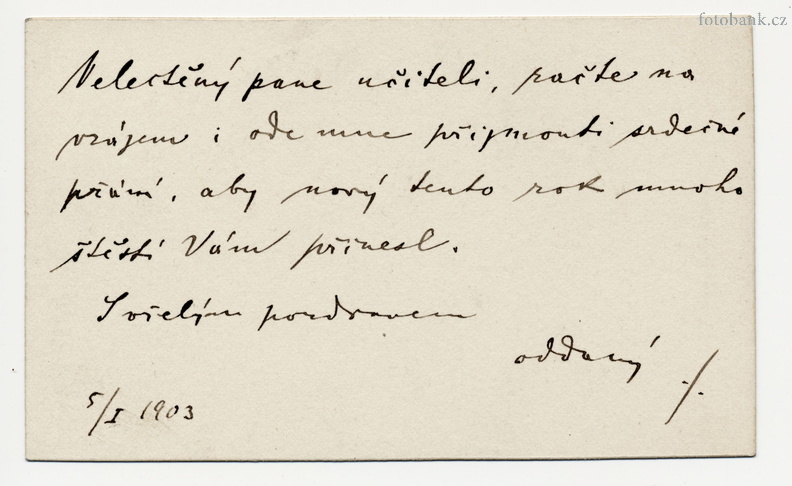 fotobank.cz
Velectěný pane učiteli, račte na
vzájem i ode mne přijmouti srdečné
přání, aby nový tento rok mnoho
štěstí Vám přinesl.
S vřelým pozdravem
oddaný ./.
5/I 1903